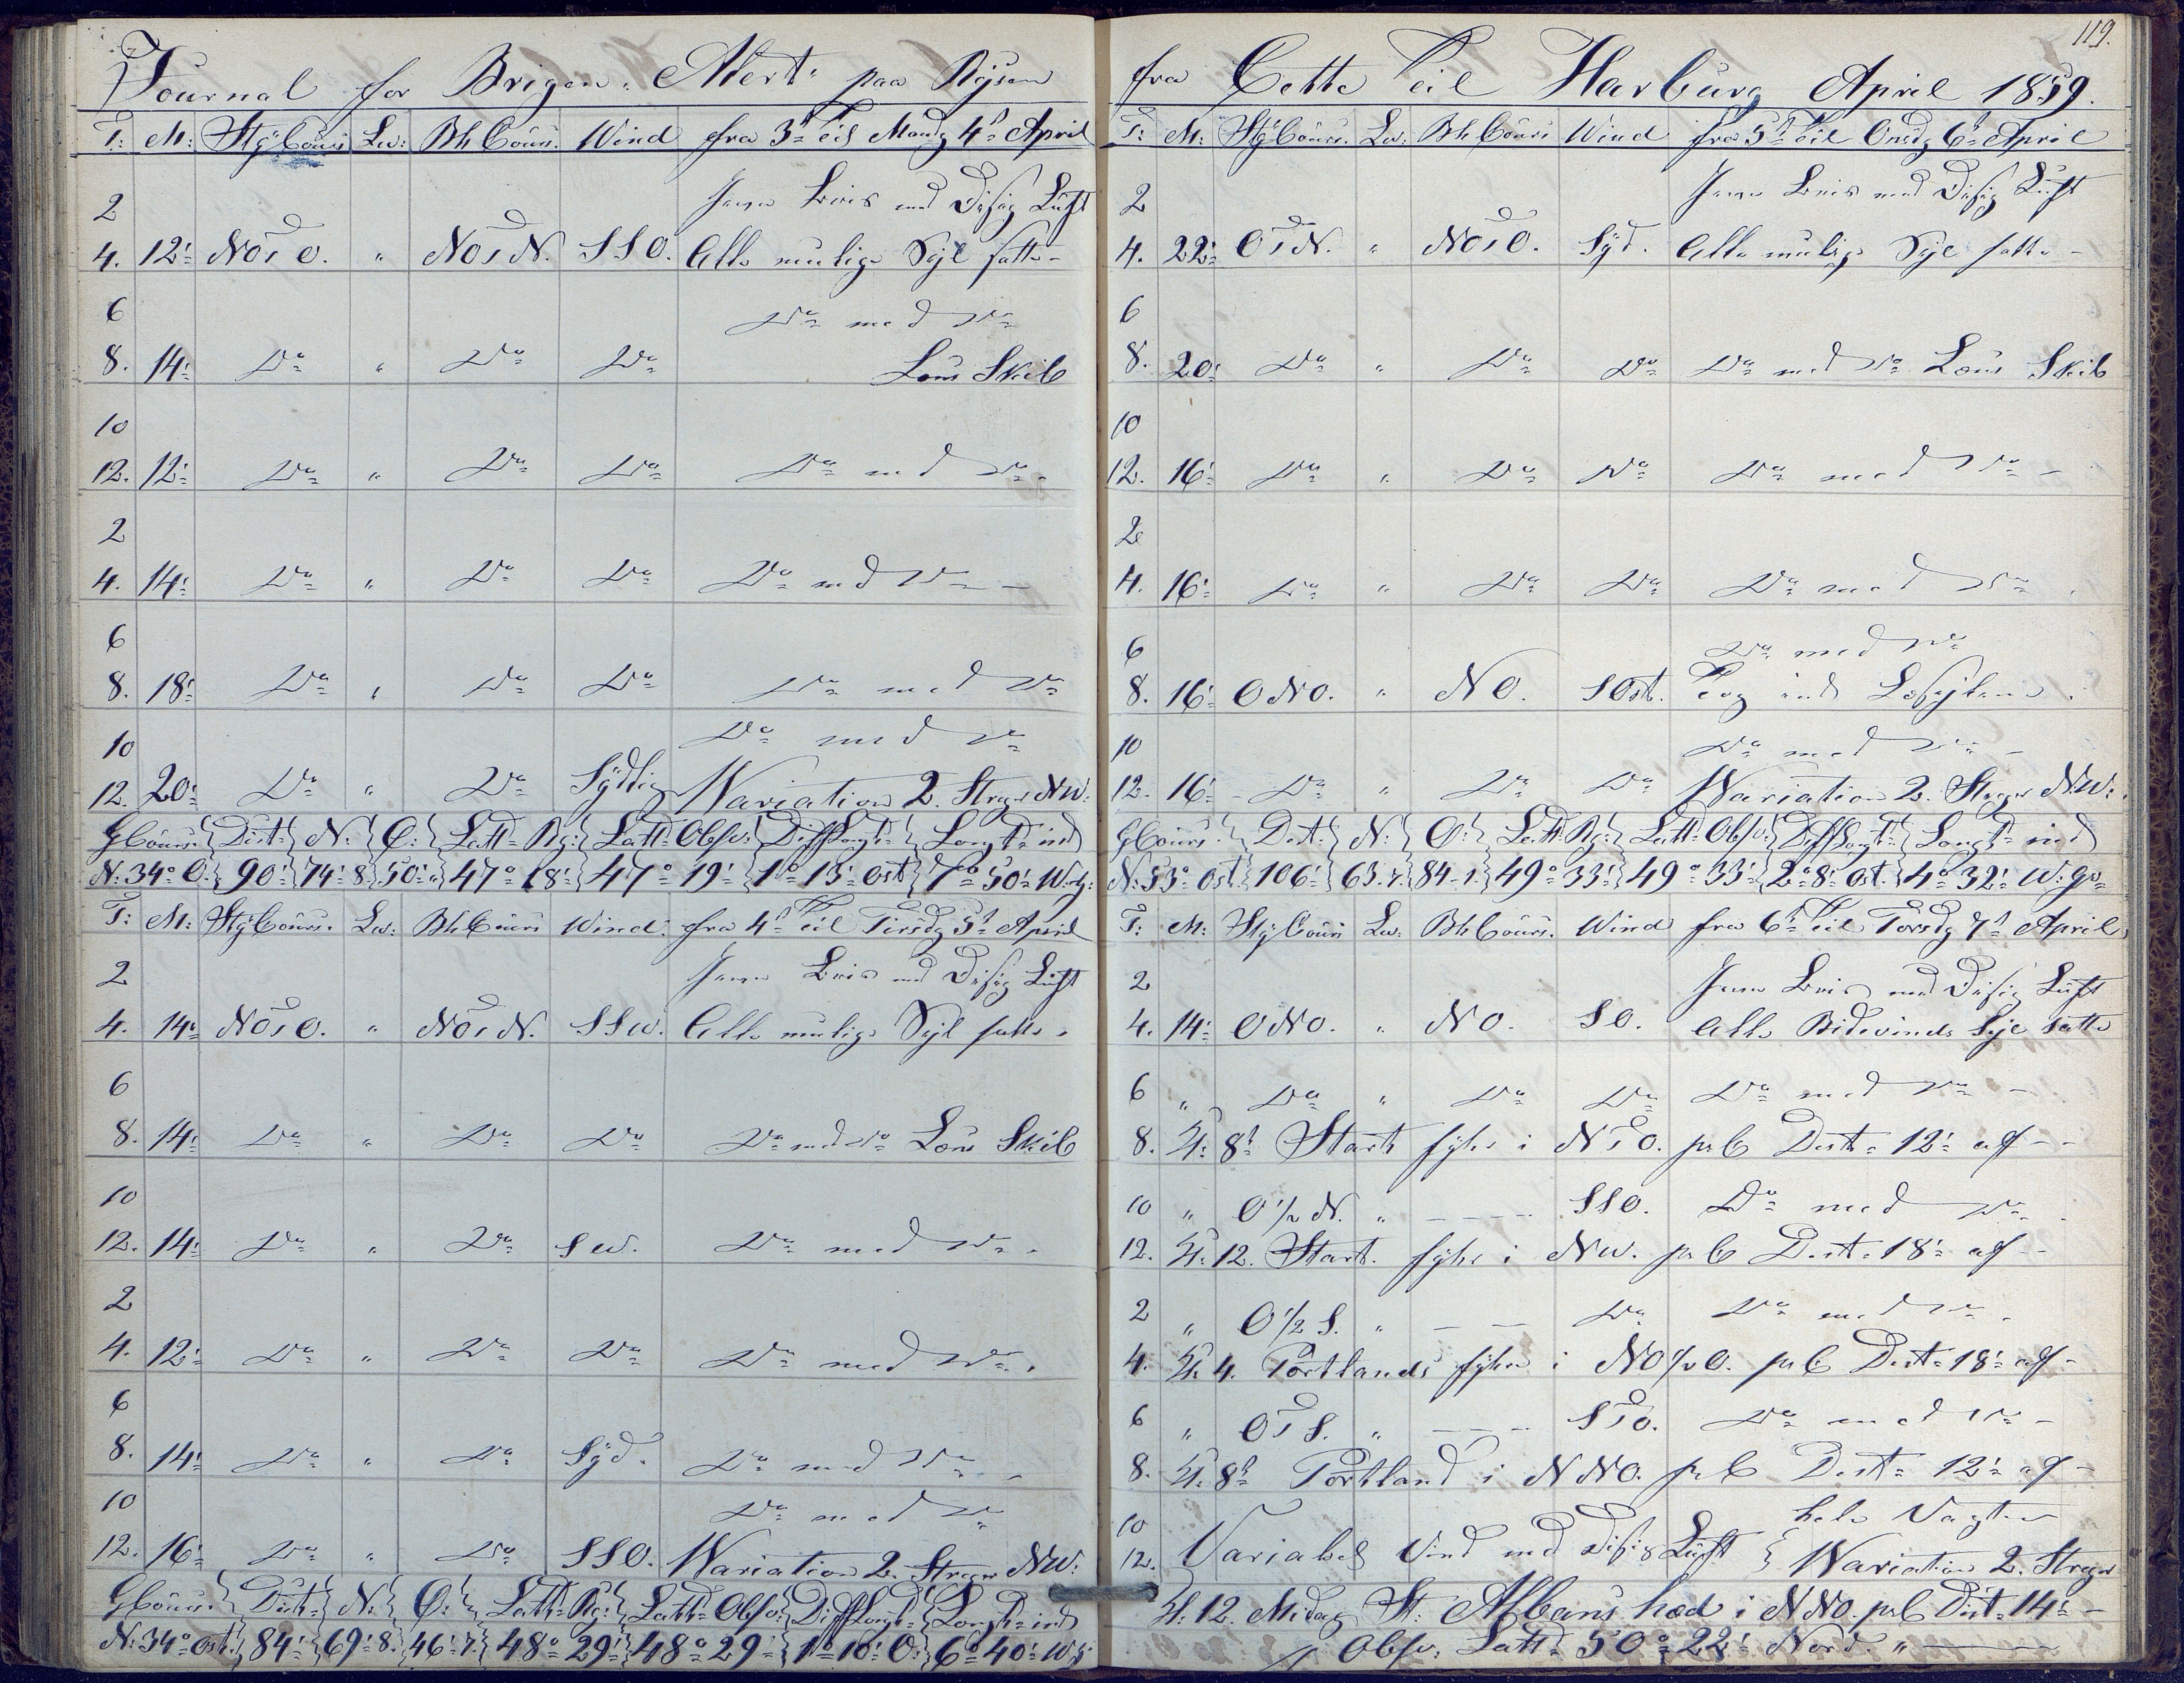 Journal for Brigen "Alert" paa Rejsen
T: M: Stÿ Cours Lw: Bh Cours. Wind fra 3d til Mandg 4d April
2 Jævn Bris med Disig Luft
4. 12' NOtO. " NOtN. SSO. Alle mulige Sejl satte -
6 Do med Do
8. 14' Do " Do Do Læns Skib
10
12. 12' Do " Do Do Do med Do.
2
4. 14' Do " Do Do Do med Do -
6
8. 18' Do " Do Do Do med Do
10 Do med Do
12. 20' Do " Do Sÿdlig Variation 2. Streger NW:
G Cours: Dist: N: O: Latt: Rg: Latt: Obsv: Diff Longt: Longt: ind
N: 34° O. 90' 74' 8 50' " 47° 18' 47° 19' 1° 13' Ost 7° 50' W
T: M: Stÿ Cours. Lw: Bh Cours Wind. fra 4d til Tirsdg 5t April
2 Jævn Bris med Disig Luft
4. 14' NOtO. " NOtN. SSW. Alle mulige Sejl satte.
6
8. 14' Do " Do Do Do med Do Læns Skib
10
12. 14' Do " Do SW. Do med Do.
2
4. 12' Do " Do Do Do med Do.
6
8. 14' Do " Do Sÿd. Do med Do -
10 Do med Do
12. 16' Do " Do SSO. Variation 2. Streger NW:
G Cours. Dist: N: O: Latt: Rg: Latt: Obsv: Diff Longt: Longt: ind
N: 34° Ost. 84' 69' 8. 46' 7. 48° 29' 48° 29' 1° 10' O: 6° 40' W
119.
fra Cette til Harburg April 1859.
T: M: Stÿ Cours. Lw: Bh Cours Wind fra 5t til Onsdg 6t April
2 Jævn Bris med Disig Luft
4. 22' OtN. " NOtO. Sÿd. Alle mulige Sejl satte -
6
8. 20' Do " Do Do Do med Do Læns Skib
10
12. 16' Do " Do Do Do med Do -
2
4. 16' Do " Do Do Do med Do
6 Do med Do
8. 16' ONO. " NO. SOst. Tog ind Læsejlene.
10 Do med Do -
12. 16' Do " Do Do Variation 2. Streger NW:
G Cours. Dist: N: O: Latt: Rg: Latt: Obsv: Diff Longt: Longt: ind
N: 53° Ost. 106' 63.7. 84.1. 49° 33' 49° 33' 2° 8' Ost. 4° 32' W: Gr
T: M: Stÿ Cours Lw: Bh Cours. Wind fra 6t til Torsdg 7d April
2 Jævn Bris med Disig Luft
4. 14' ONO. " NO. SO. Alle Bidevinds Sejl satte
6 " Do " Do Do Do med Do -
8. Kl: 8t Start fyhr i NtO. prC Dist: 12' af - -
10 " O 1/2 N. " - - - SSO. Do med Do.
12. Kl: 12. Start. fyhr i NW. prC Dist: 18' af - -
2 " O 1/2 S. " - - Do Do med Do.
4. Kl. 4. Portlands fyhr i NO 1/2 O. prC Dist: 18' af -
6 " OtS. " - - - StO. Do med Do -
8. Kl: 8t Portland i NNO. prC Dist: 12' af -
10 hele Vagten
12. Variabel Vind med Disig Luft Variation 2. Streger
Kl: 12. Midag St: Albans hæd i NNO. prC Dist: 14' -
Obsv: Latt: 50° 22' Nord. "